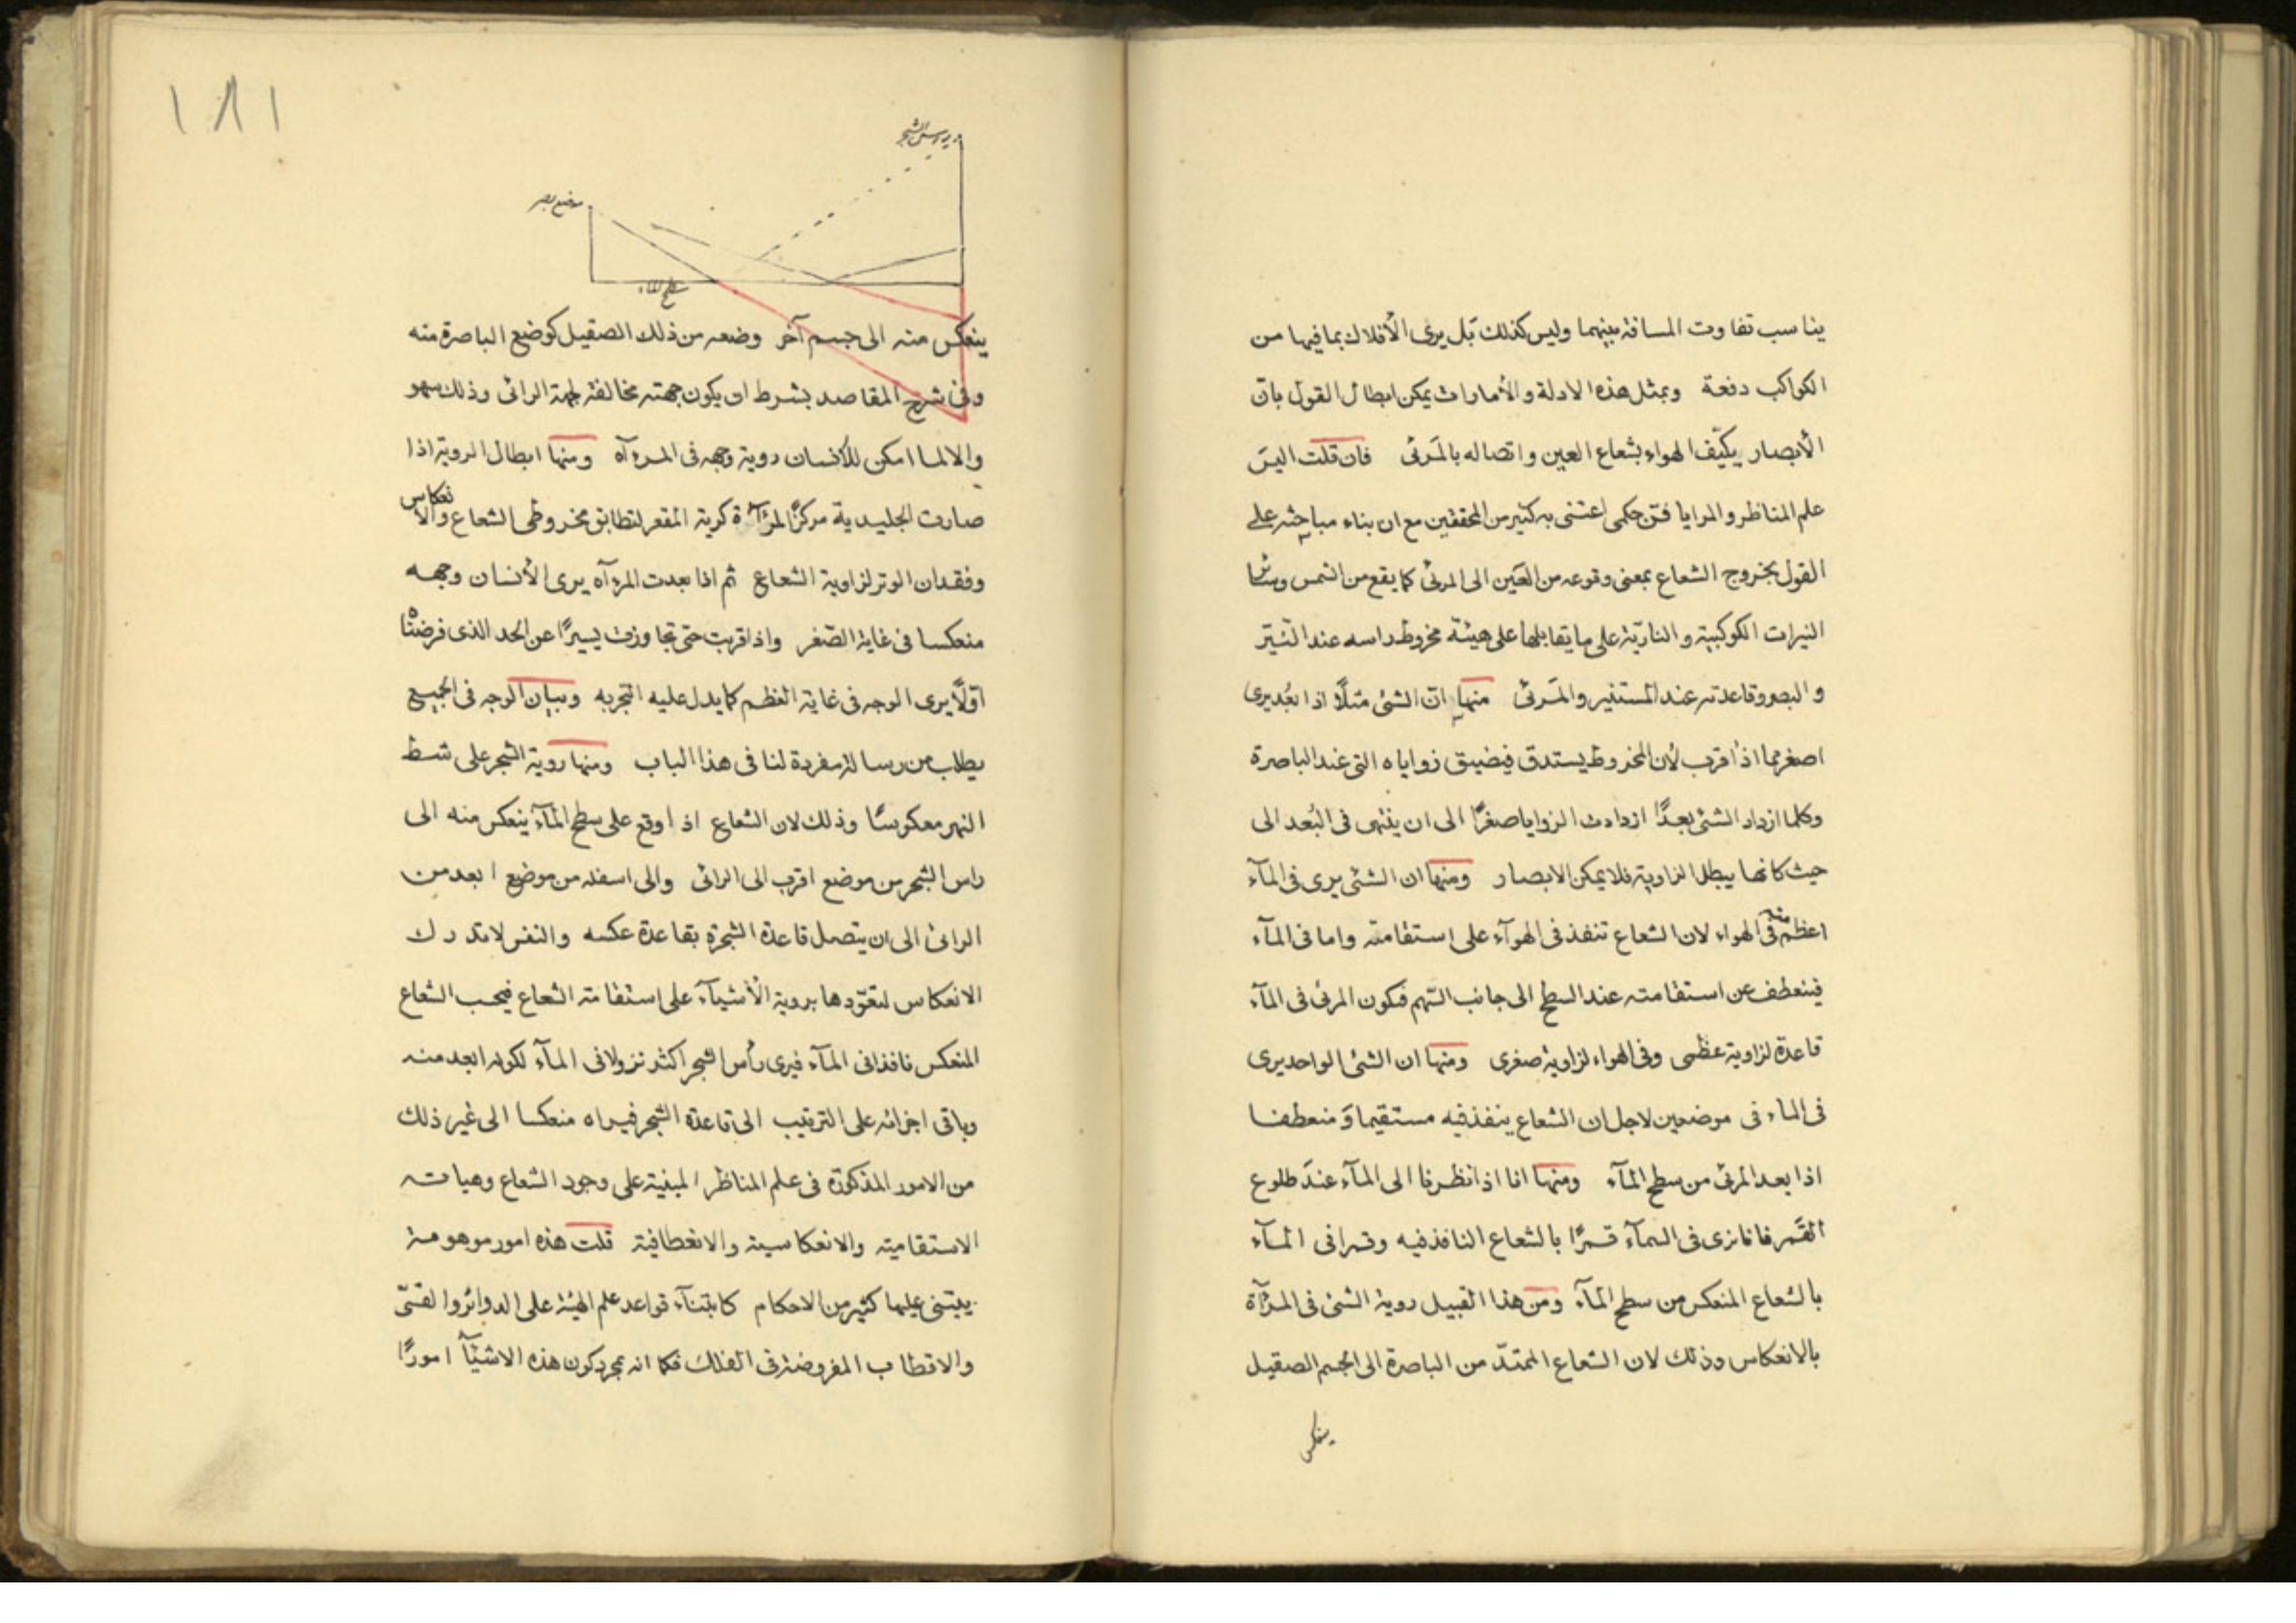 يناسب تفاوت المسافة بينهما وليس كذلك بل يرى الأفلاك بما فيها من
الكواكب دفعة وبمثل هذه الادلة والأمارات يمكن ابطال القول بان
الأبصار يكيّف الهواء بشعاع العين واتصاله بالمرئى فان قلت اليس
علم المناظر والمرايا فن حكمى اعتنى به كثير من المحققين مع ان بناء مباحثه على
القول بخروج الشعاع بمعنى وقوعه من العين الى المرئى كما يقع من الشمس وسائر
النيرات الكوكبية والنارية على ما يقابلها على هيئة مخروط راسه عند النيّر
والبصر وقاعدته عند المستنير والمرئى منها ان الشئ مثلًا اذا بعُد يرى
اصغر مما اذا قرب لأن المخروط يستدق فيضيق زواياه التى عند الباصرة
وكلما ازداد الشئ بعدًا ازدادت الزوايا صغرًا الى ان ينتهى فى البُعد الى
حيث كانها يبطل الزاوية فلا يمكن الابصار ومنها ان الشئ يرى فى المآء
اعظم منه فى الهواء لان الشعاع تنفذ فى الهوآء على استقامته واما فى المآء
فينعطف عن استقامته عند السطح الى جانب السهم فيكون المرئى فى المآء
قاعدة لزاوية عظمى وفى الهواء لزاوية صغرى ومنها ان الشئ الواحد يرى
فى الماء فى موضعين لاجل ان الشعاع ينفذ فيه مستقيما ومنعطفا
اذا بعد المرئى من سطح المآء ومنها انا اذا نظرنا الى المآء عند طلوع
القمر فانا نرى فى السمآء قمرًا بالشعاع النافذ فيه وقمرا فى المآء
بالشعاع المنعكس من سطح المآء ومن هذا القبيل روية الشئ فى المرآة
بالانعكاس وذلك لان الشعاع الممتدّ من الباصرة الى الجسم الصقيل
ينعكس
١٨١
راس الشجر
موضع بصر
سطح الماء
ينعكس منه الى جسم آخر وضعه من ذلك الصقيل كوضع الباصرة منه
وفى شرح المقاصد بشرط ان يكون جهته مخالفة لجهة الرائى وذلك سهو
والا لما امكن للانسان روية وجهه فى المرءآه ومنها ابطال الروية اذا
صارت الجليدية مركزًا لمرآة كرية المقعر لتطابق مخروطى الشعاع والانعكاس
وفقدان الوتر لزاوية الشعاع ثم اذا بعدت المرءآه يرى الأنسان وجهه
منعكسا فى غاية الصّغر واذا قربت حتى تجاوزت يسيرًا عن الحد الذى فرضناه
اوّلًا يرى الوجه فى غاية العظم كما يدل عليه التجربه وبيان الوجه فى الجميع
يطلب من رسالة مفردة لنا فى هذا الباب ومنها روية الشجر على شط
النهر معكوسًا وذلك لان الشعاع اذا وقع على سطح المآء ينعكس منه الى
راس الشجر من موضع اقرب الى الرائى والى اسفله من موضع ابعد من
الرائى الى ان يتصل قاعدة الشجرة بقاعدة عكسه والنفس لا تدرك
الانعكاس لتعوّدها بروية الأشيآء على استقامة الشعاع فيحسب الشعاع
المنعكس نافذا فى المآء فيرى رأس الشجر اكثر نزولا فى المآء لكونه ابعد منه
وباقى اجزائه على الترتيب الى قاعدة الشجر فيراه منعكسا الى غير ذلك
من الامور المذكورة فى علم المناظر المبنية على وجود الشعاع وهياته
الاستقامية والانعكاسية والانعطافية قلت هذه امور موهومة
يبتنى عليها كثير من الاحكام كابتنآء قواعد علم الهيئة على الدوائر والقسىّ
والاقطاب المفروضة فى الفلك فكما انه بمجرد كون هذه الاشيآء امورًا